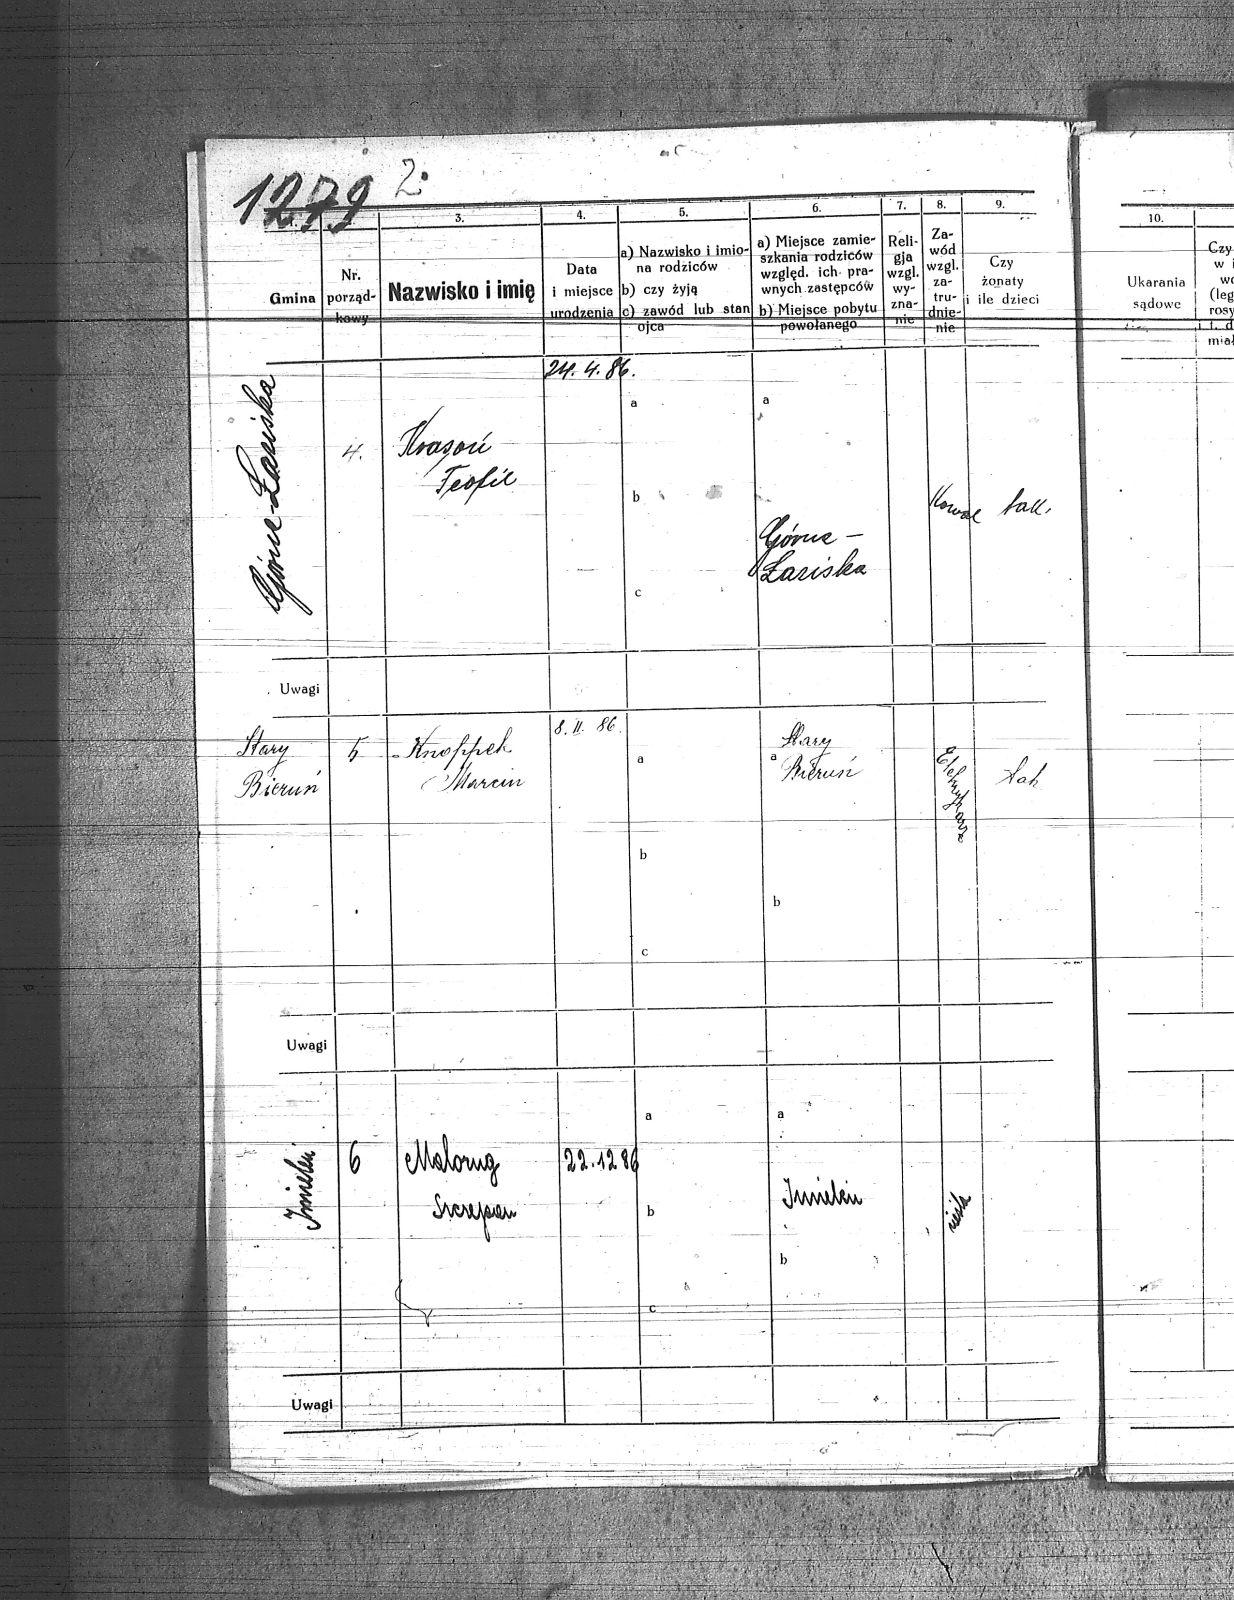 1279
2.
3.
4.
5.
6.
7.
8.
9.
10.
Gmina
Nr.
porząd-
kowy
Nazwisko i imię
Data
i miejsce
urodzenia
a) Nazwisko i imio-
na rodziców
b) czy żyją
c) zawód lub stan
ojca
a) Miejsce zamie-
szkania rodziców
względ. ich pra-
wnych zastępców
b) Miejsce pobytu
powołanego
Reli-
gja
wzgl.
wy-
zna-
nie
Za-
wód
wzgl.
za-
tru-
dnie-
nie
Czy
żonaty
i ile dzieci
Ukarania
sądowe
Czy
w i
wo
(leg
rosy
i. d
miał
Górne-Łaziska
4.
Krasoń
Teofil
24.4.86.
a
b
c
a
Górne-
Łaziska
Kowal
tak.
Uwagi
Stary
Bieruń
5
Knoppek
Marcin
8.II.86.
a
b
c
Stary
a
Bieruń
b
tak
Uwagi
Imielin
6
Szczepan
22.12 86
a
b
c
a
Imielin
b
cieśla
Uwagi